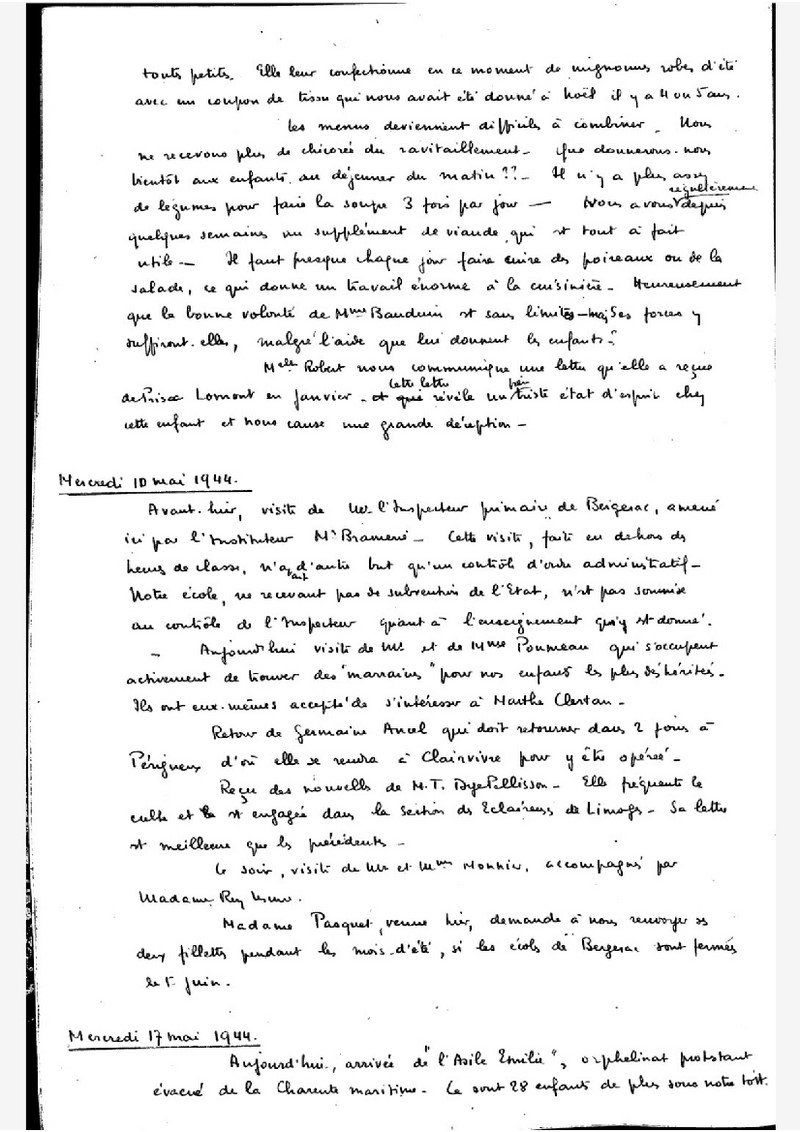 touts petits. Elle leur confectionne en ce moment de mignonnes robes d'été
avec un coupon de tissu qui nous avait été donné à Noël il y a 4 ou 5 ans.
Les menus deviennent difficiles à combiner. Nous
ne recevons plus de chicorée du ravitaillement - Que donnerons-nous
bientôt aux enfants au déjeuner du matin ?? - Il n'y a plus assez
de légumes pour faire la soupe 3 fois par jour — Nous avons régulièrement depuis
quelques semaines un supplément de viande qui est tout à fait
utile - Il faut presque chaque jour faire cuire des poireaux ou de la
salade, ce qui donne un travail énorme à la cuisinière - Heureusement
que la bonne volonté de Mme Bauduin est sans limites - mais ses forces y
suffiront-elles, malgré l'aide que lui donnent les enfants ?
Melle Robert nous communique une lettre qu'elle a reçue
de Lomont en janvier - cette lettre révèle un triste état d'esprit chez
cette enfant et nous cause une grande déception -
Mercredi 10 mai 1944.
Avant-hier, visite de Mr l'Inspecteur primaire de Bergerac, amené
ici par l'Instituteur Mr - Cette visite, faite en dehors des
heures de classe, n'ayant d'autre but qu'un contrôle d'ordre administratif -
Notre école, ne recevant pas de subvention de l'Etat, n'est pas soumise
au contrôle de l'Inspecteur quant à l'enseignement qui y est donné.
- Aujourd'hui visite de Mr et de Mme Poumeau qui s'occupent
activement de trouver des "marraines" pour nos enfants les plus déshérités -
Ils ont eux-mêmes accepté de s'intéresser à Marthe Clertan -
Retour de Germaine Ancel qui doit retourner dans 2 jours à
Périgueux d'où elle se rendra à Clairvivre pour y être opérée -
Reçu des nouvelles de M.T. - Elle fréquente le
culte et est engagée dans la Section des Eclaireuses de Limoges - Sa lettre
est meilleure que les précédentes -
Ce soir, visite de Mr et Mme Monnier, accompagnés par
Madame Rey
Madame Pasquet, venue hier, demande à nous renvoyer ses
deux fillettes pendant les mois d'été, si les écoles de Bergerac sont fermées
le 1er juin.
Mercredi 17 mai 1944.
Aujourd'hui, arrivée de "l'Asile Emilie", orphelinat protestant
évacué de la Charente maritime - Ce sont 28 enfants de plus sous notre toit.